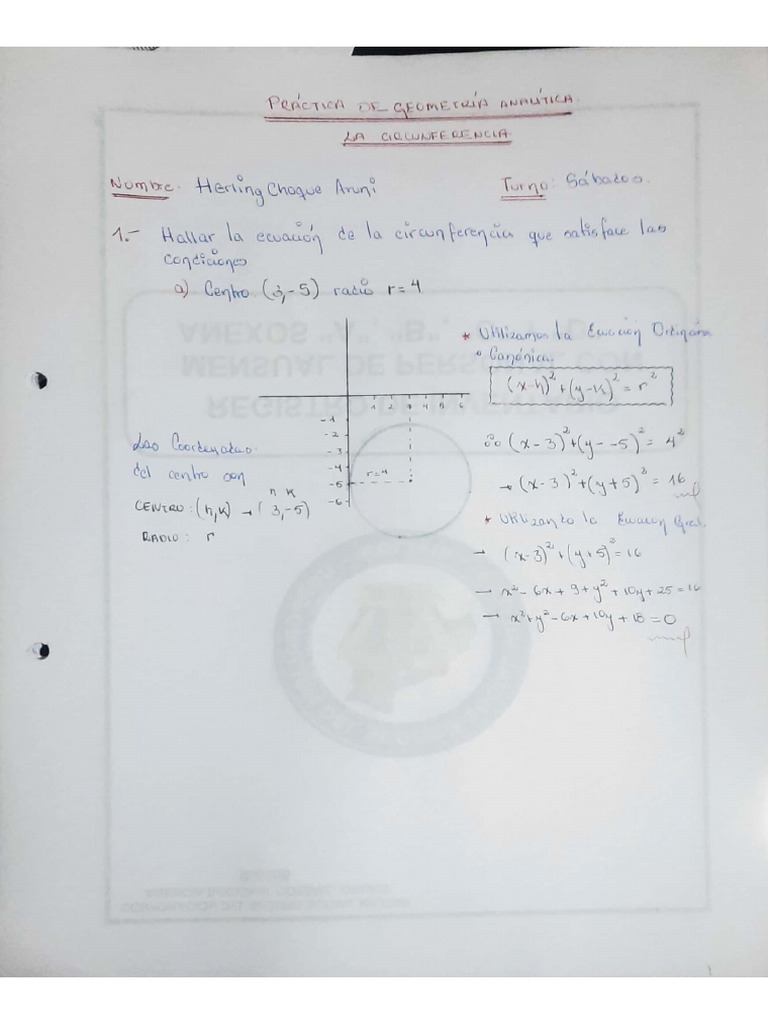 PRÁCTICA DE GEOMETRÍA ANALÍTICA.
LA CIRCUNFERENCIA.
Nombre. Herling Choque Aruni
Turno: Sábados.
1.- Hallar la ecuación de la circunferencia que satisface las
condiciones
a) Centro (3,-5) radio r=4
* Utilizamos la Ecuación Ordinaria
o Canónica.
(x-h)²+(y-k)² = r²
1 2 3 4 5 6
-1
-2
-3
-4
-5
-6
r=4
Las Coordenadas
del centro son
h k
CENTRO: (h,k) → (3,-5)
RADIO: r
∴ (x-3)²+(y--5)² = 4²
→ (x-3)²+(y+5)² = 16
* Utilizando la Ecuación Gral.
→ (x-3)²+(y+5)² = 16
→ x²-6x+9+y²+10y+25=16
→ x²+y²-6x+10y+18=0
ANEXOS "A", "B",
MENSUAL DE PERSONAL CON
REGISTRO DE INVENTARIO